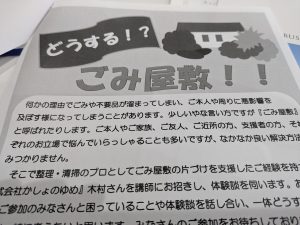 どうする!?
ごみ屋敷!!
何かの理由でごみや不要品が溜まってしまい、ご本人や周りに悪影響を
及ぼす様になってしまうことがあります。少しいやな言い方ですが『ごみ屋敷』
と呼ばれたりします。ご本人やご家族、ご友人、ご近所の方、支援者の方、それ
ぞれのお立場で悩んでいらっしゃることも多いですが、なかなか良い解決方法
みつかりません。
そこで整理・清掃のプロとしてごみ屋敷の片づけを支援したご経験を持
式会社かしょのゆめ』木村さんを講師にお招きし、体験談を伺います。お
ご参加のみなさんと困っていることや体験談を話し合い、一体どうす
みなさんのご参加をお待ちしており
BUS